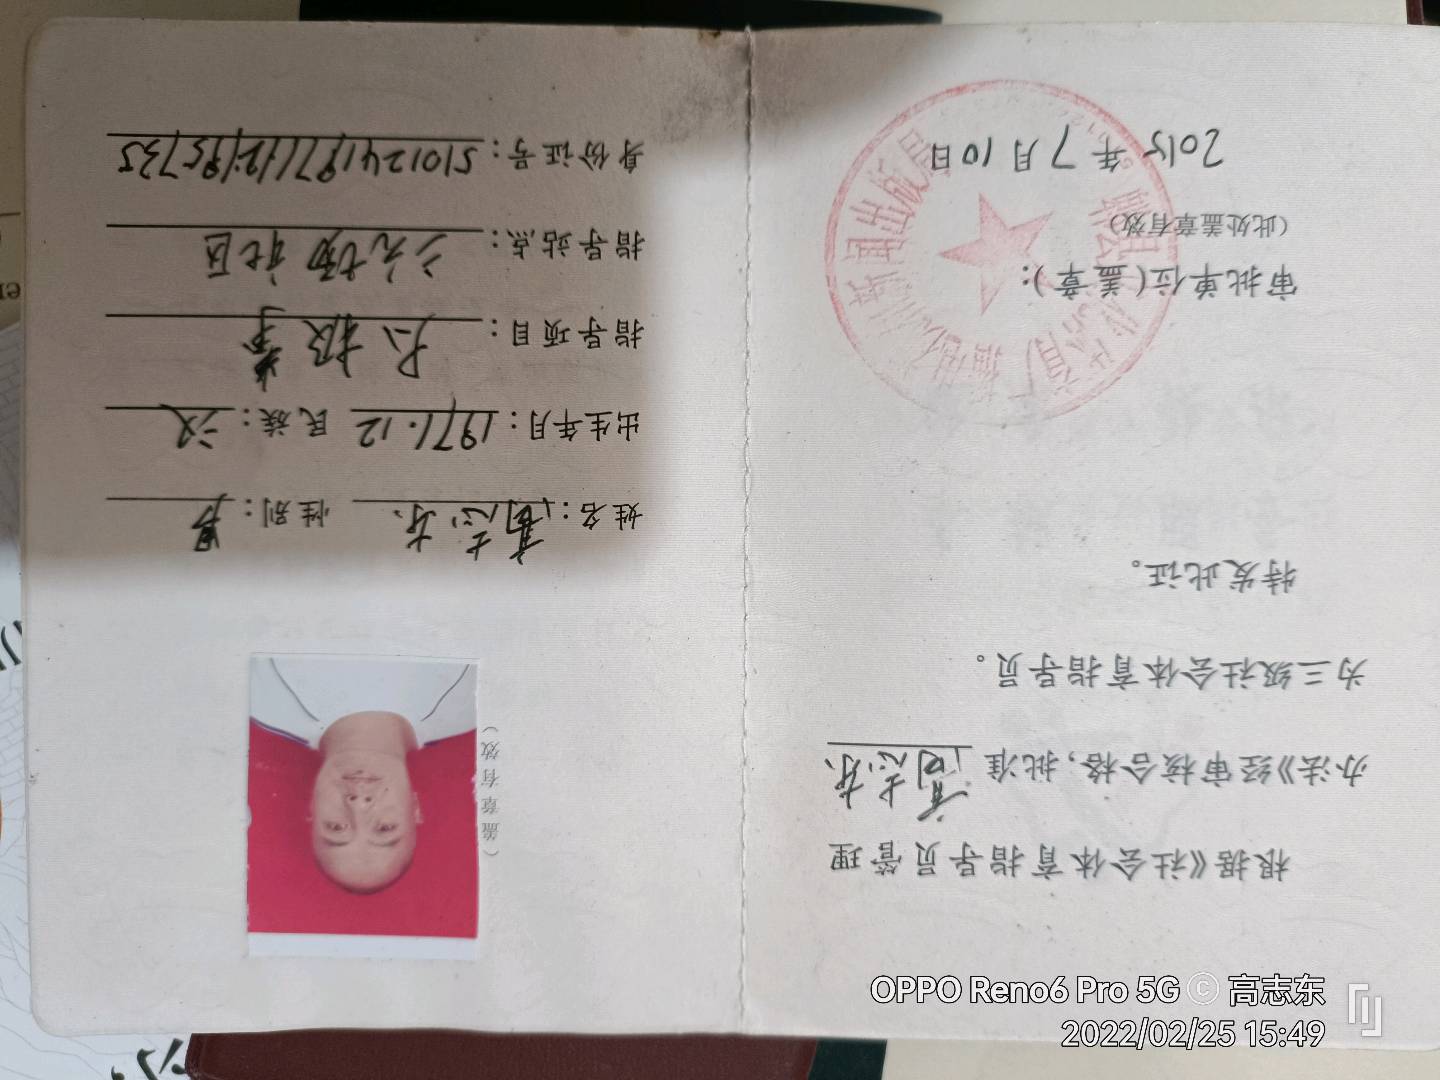 根据《社会体育指导员管理
办法》经审核合格，批准 高志东
为三级社会体育指导员。
特发此证。
审批单位（盖章）：
（此处盖章有效）
2015年7月10日
（盖章有效）
姓名：高志东 性别：男
出生年月：1971.12 民族：汉
指导项目：太极拳
指导站点：三元场社区
身份证号：510124197112195735
OPPO Reno6 Pro 5G © 高志东
2022/02/25 15:49